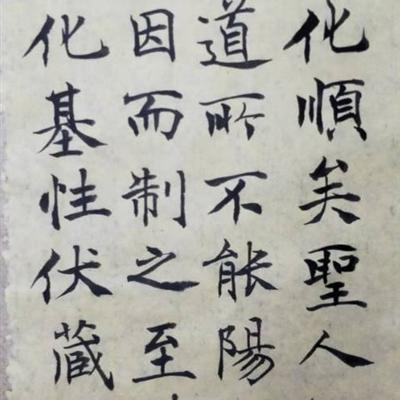 化順矣聖人
道所不能陽
因而制之至
化基性伏藏